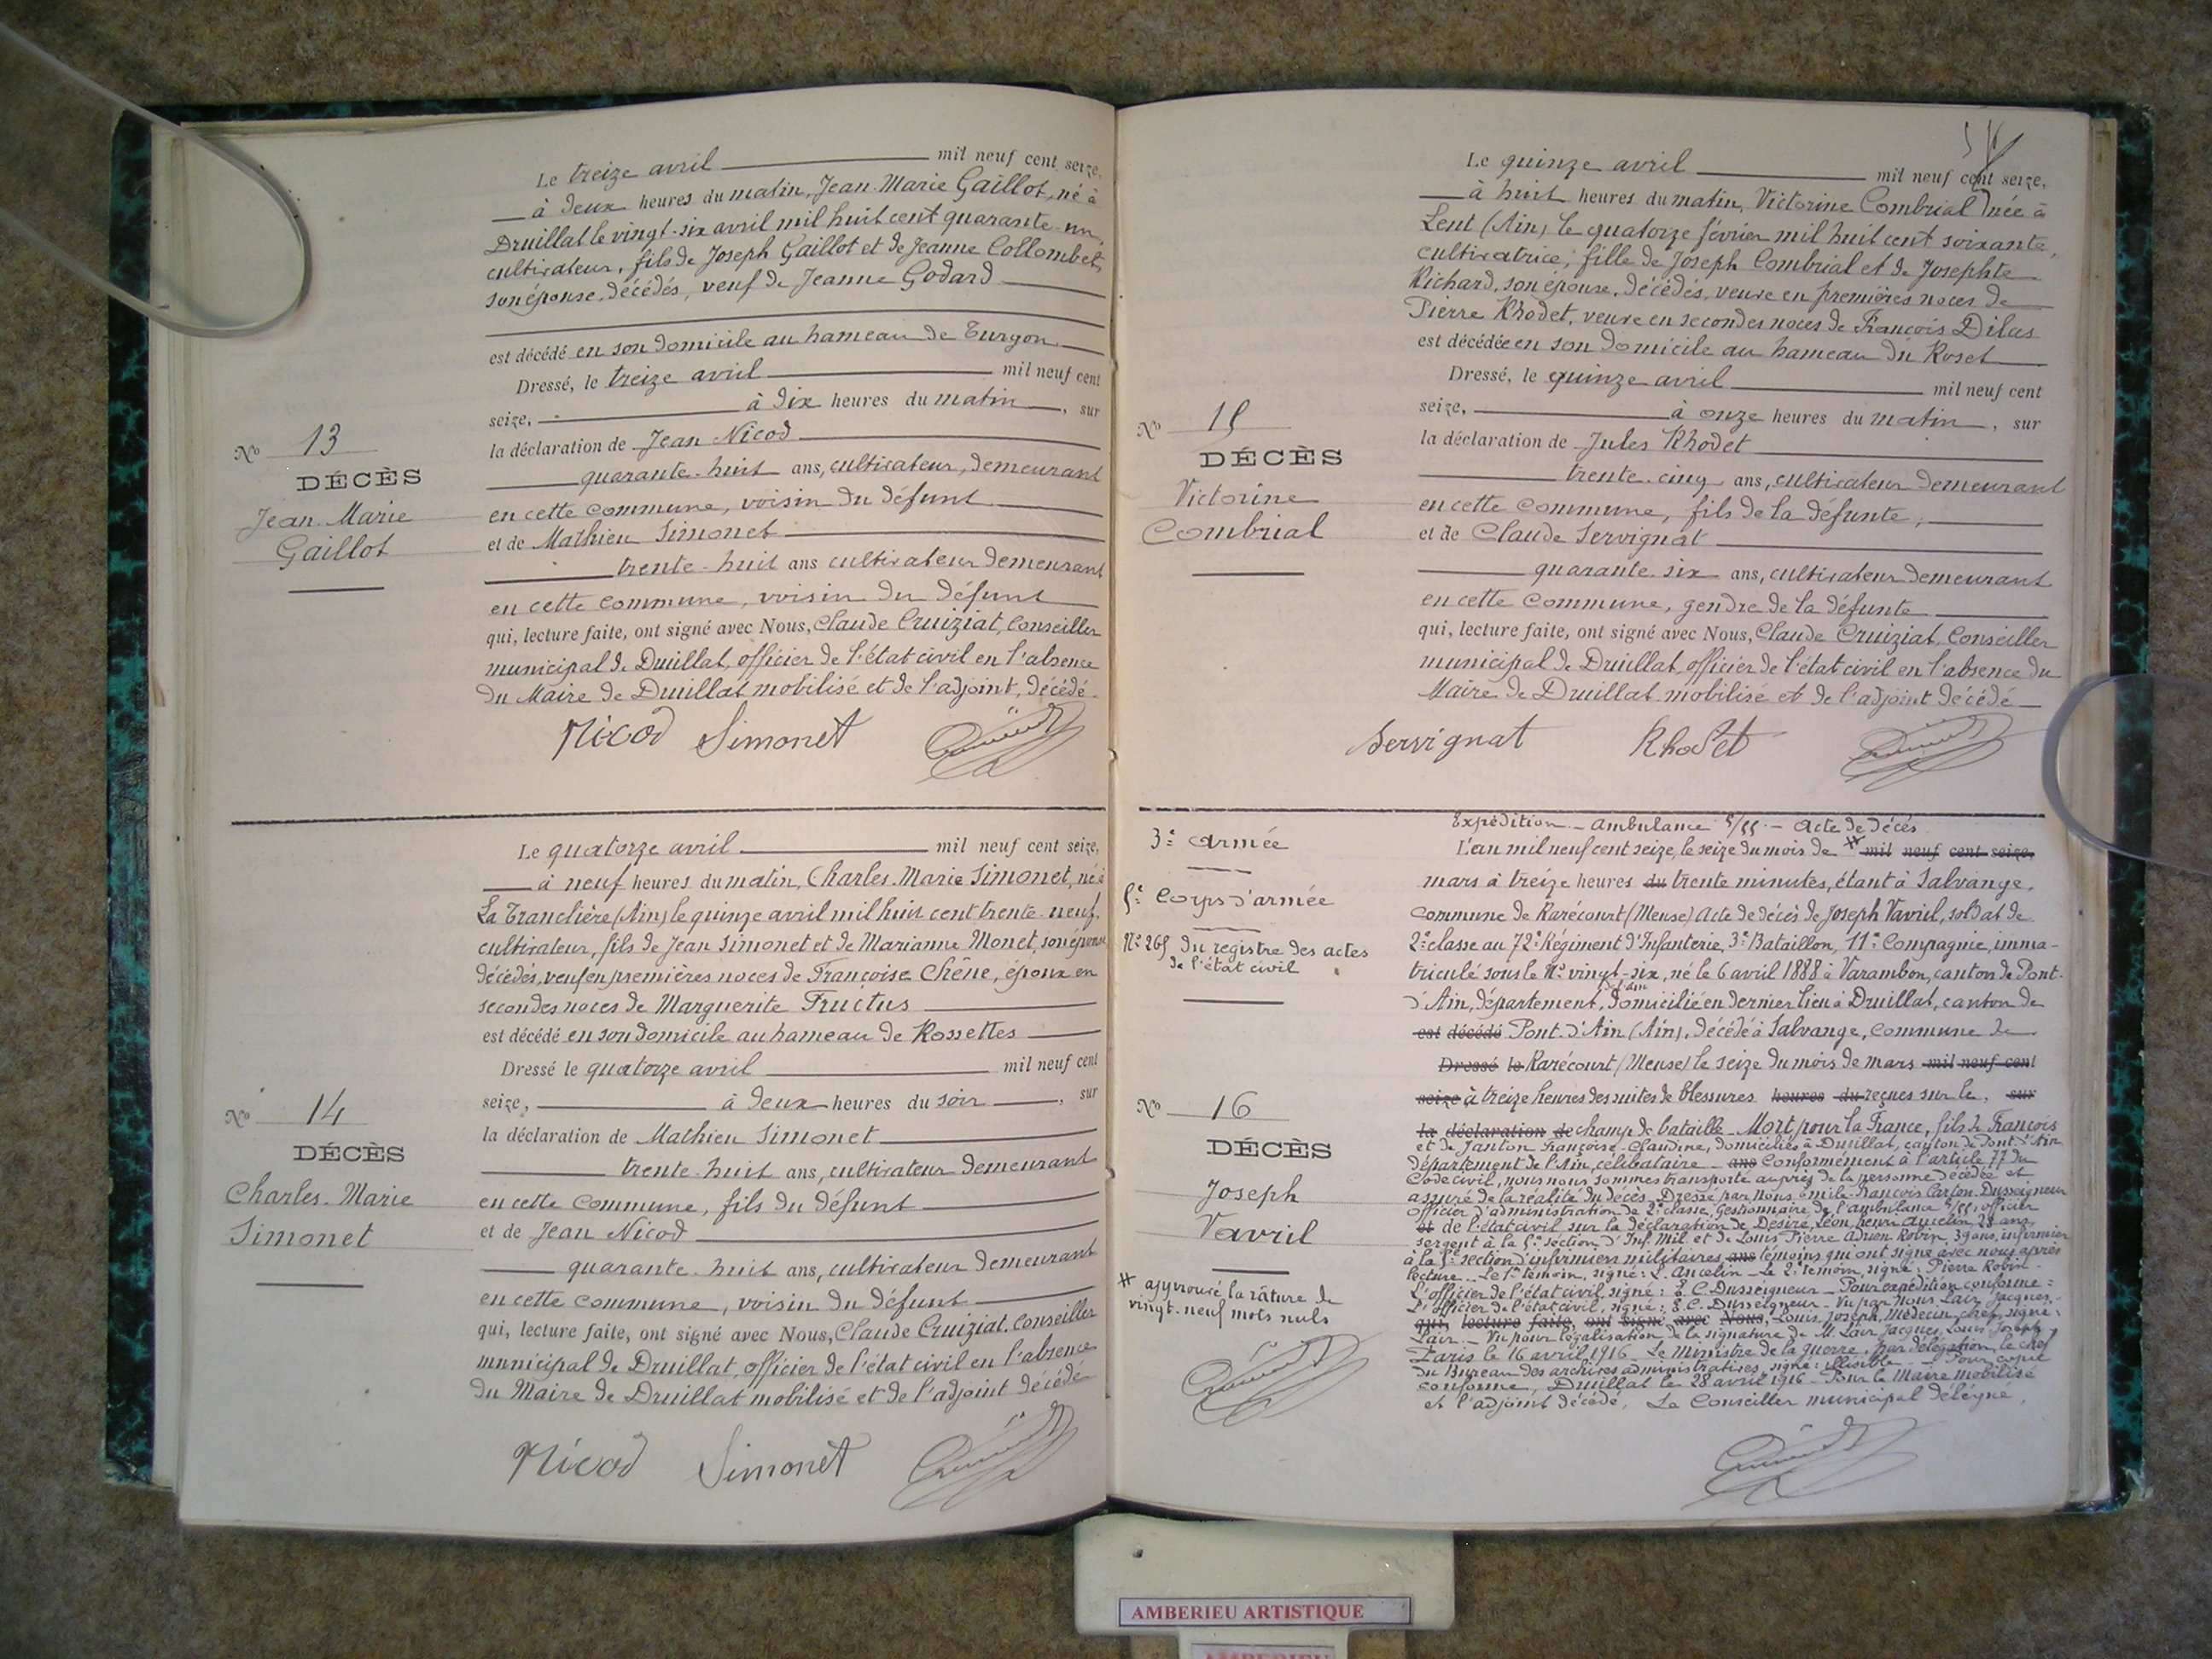 Le treize avril mil neuf cent seize,
à deux heures du matin, Jean-Marie Gaillot, né à
Druillat le vingt-six avril mil huit cent quarante-un,
cultivateur, fils de Joseph Gaillot et de Jeanne Collombet,
son épouse, décédés, veuf de Jeanne Godard
est décédé en son domicile au hameau de Turgon
Dressé, le treize avril mil neuf cent
seize, à dix heures du matin, sur
la déclaration de Jean Nicod
quarante-huit ans, cultivateur, demeurant
en cette commune, voisin du défunt
et de Mathieu Simonet
trente-huit ans cultivateur demeurant
en cette commune, voisin du défunt
qui, lecture faite, ont signé avec Nous, Claude Cruiziat, Conseiller
municipal de Druillat, officier de l'état civil en l'absence
du Maire de Druillat mobilisé et de l'adjoint, décédé
Nicod Simonet
N° 13
DÉCÈS
Jean-Marie
Gaillot
Le quatorze avril mil neuf cent seize,
à neuf heures du matin, Charles-Marie Simonet, né à
La Tranclière (Ain) le quinze avril mil huit cent trente-neuf,
cultivateur, fils de Jean Simonet et de Marianne Monet, son épouse
décédés, veuf en premières noces de Françoise Chêne, époux en
secondes noces de Marguerite Fructus
est décédé en son domicile au hameau de Rossettes
Dressé le quatorze avril mil neuf cent
seize, à deux heures du soir, sur
la déclaration de Mathieu Simonet
trente-huit ans, cultivateur demeurant
en cette commune, fils du défunt
et de Jean Nicod
quarante-huit ans, cultivateur demeurant
en cette commune, voisin du défunt
qui, lecture faite, ont signé avec Nous, Claude Cruiziat, Conseiller
municipal de Druillat, officier de l'état civil en l'absence
du Maire de Druillat mobilisé et de l'adjoint décédé
Nicod Simonet
N° 14
DÉCÈS
Charles-Marie
Simonet
Le quinze avril mil neuf cent seize,
à huit heures du matin, Victorine Combrial née à
Lent (Ain) le quatorze février mil huit cent soixante,
cultivatrice, fille de Joseph Combrial et de Josephte
Richard, son épouse, décédés, veuve en premières noces de
Pierre Rhodet, veuve en secondes noces de François Dilas
est décédée en son domicile au hameau du Roset
Dressé, le quinze avril mil neuf cent
seize, à onze heures du matin, sur
la déclaration de Jules Rhodet
trente-cinq ans, cultivateur demeurant
en cette commune, fils de la défunte,
et de Claude Servignat
quarante-six ans, cultivateur demeurant
en cette commune, gendre de la défunte
qui, lecture faite, ont signé avec Nous, Claude Cruiziat, Conseiller
municipal de Druillat, officier de l'état civil en l'absence du
Maire de Druillat mobilisé et de l'adjoint décédé
Servignat Rhodet
N° 15
DÉCÈS
Victorine
Combrial
3e armée
5e Corps d'armée
N° 265 du registre des actes
de l'état civil
N° 16
DÉCÈS
Joseph
Vavril
# approuvé la râture de
vingt-neuf mots nuls
Expédition - Ambulance 5/55 - Acte de décès
L'an mil neuf cent seize, le seize du mois de # mil neuf cent seize,
mars à treize heures du trente minutes, étant à Salvange,
commune de Rarécourt (Meuse) Acte de décès de Joseph Vavril, soldat de
2e classe au 72e Régiment d'Infanterie, 3e Bataillon, 11e Compagnie, imma-
triculé sous le N° vingt-six, né le 6 avril 1888 à Varambon, canton de Pont-
d'Ain, département de l'Ain, domicilié en dernier lieu à Druillat, canton de
est décédé Pont-d'Ain (Ain), décédé à Salvange, commune de
Dressé le Rarécourt (Meuse) le seize du mois de mars mil neuf cent
seize à treize heures des suites de blessures heures du reçues sur le, sur
la déclaration de champ de bataille - Mort pour la France, fils de François
et de Janton Françoise-Claudine, domiciliés à Druillat, canton de Pont-d'Ain
département de l'Ain, célibataire - ans Conformément à l'article 77 du
Code civil, nous nous sommes transporté auprès de la personne décédée et
assuré de la réalité du décès. Dressé par nous Emile François Carlon Dusseigneur
officier d'administration de 2e classe, Gestionnaire de l'ambulance 5/55, officier
et de l'état civil sur la déclaration de Désiré, Léon, henri Ancelin 28 ans,
sergent à la 5e section d'Inf. Mil et de Louis Pierre Adrien Robin, 39 ans, infirmier
à la 5e section d'infirmiers militaires, ans témoins qui ont signé avec nous après
lecture - Le 1er témoin, signé: L. Ancelin - Le 2e témoin, signé: Pierre Robin -
L'officier de l'état civil signé: E. C. Dusseigneur - Pour expédition conforme:
L'officier de l'état civil, signé: E. C. Dusseigneur - Vu par nous Lair Jacques-
qui, lecture faite, ont signé avec Nous, Louis Joseph, Médecin chef, signé:
Lair - Vu pour légalisation de la signature de M. Lair Jacques Louis Joseph
Paris le 16 avril 1916 - Le Ministre de la guerre, par délégation, le chef
du Bureau des archives administratives, signé: illisible - Pour copie
conforme, Druillat le 28 avril 1916 - Pour le Maire mobilisé
et l'adjoint décédé, Le Conseiller municipal délégué,
AMBERIEU ARTISTIQUE
AMBERIEU